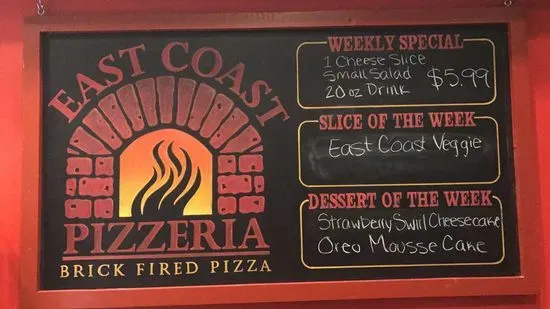 EAST COAST
PIZZERIA
BRICK FIRED PIZZA
WEEKLY SPECIAL
1 Cheese Slice
Small Salad
20 oz Drink $5.99
SLICE OF THE WEEK
East Coast Veggie
DESSERT OF THE WEEK
Strawberry Swirl Cheesecake
Oreo Mousse Cake